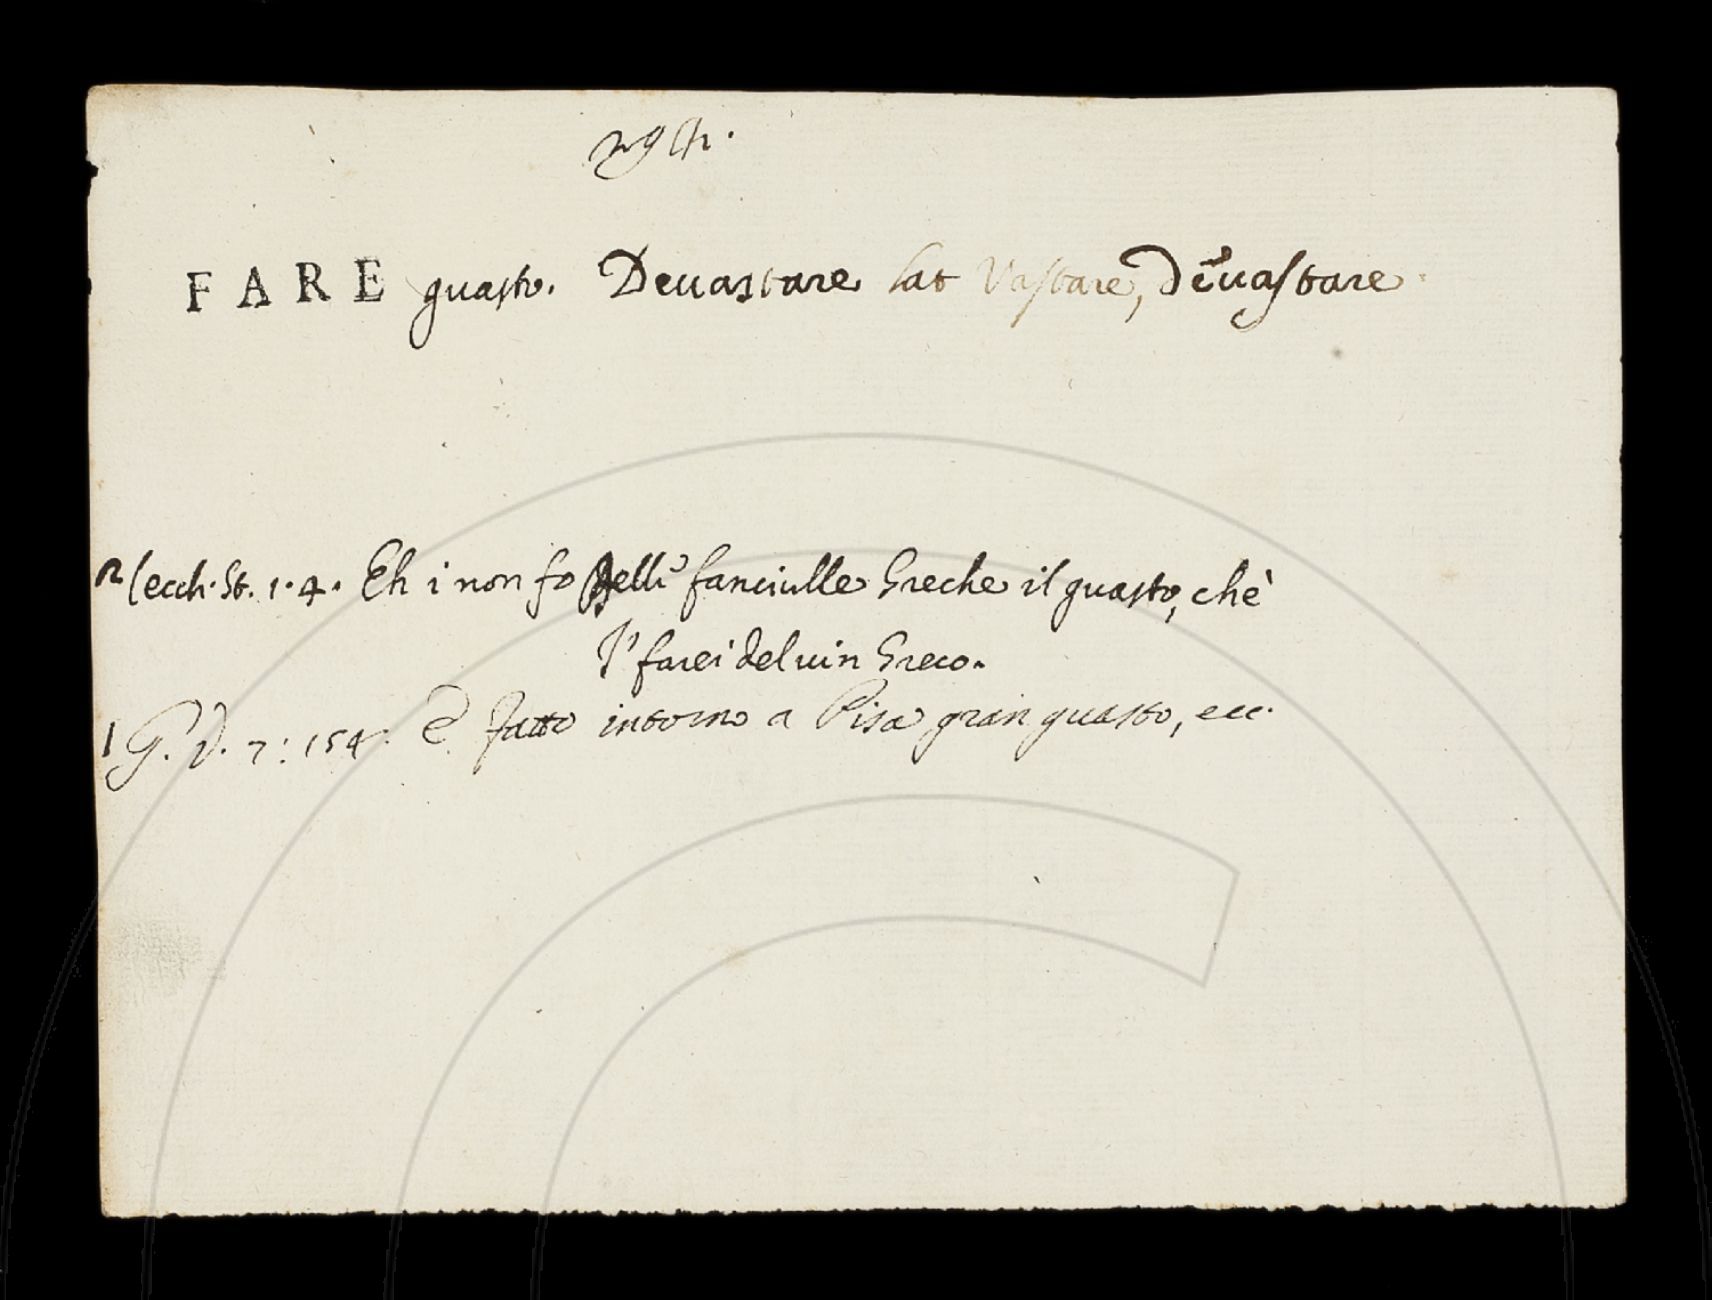 FARE guasto. Deuastare lat Vastare, deuastare
2 Cecch. St. 1. 4. Eh i non fo delle fanciulle Greche il guasto, chè
I' farei del uin Greco.
1 G. V. 7: 154. E fatto intorno a Pisa gran guasto, ecc.